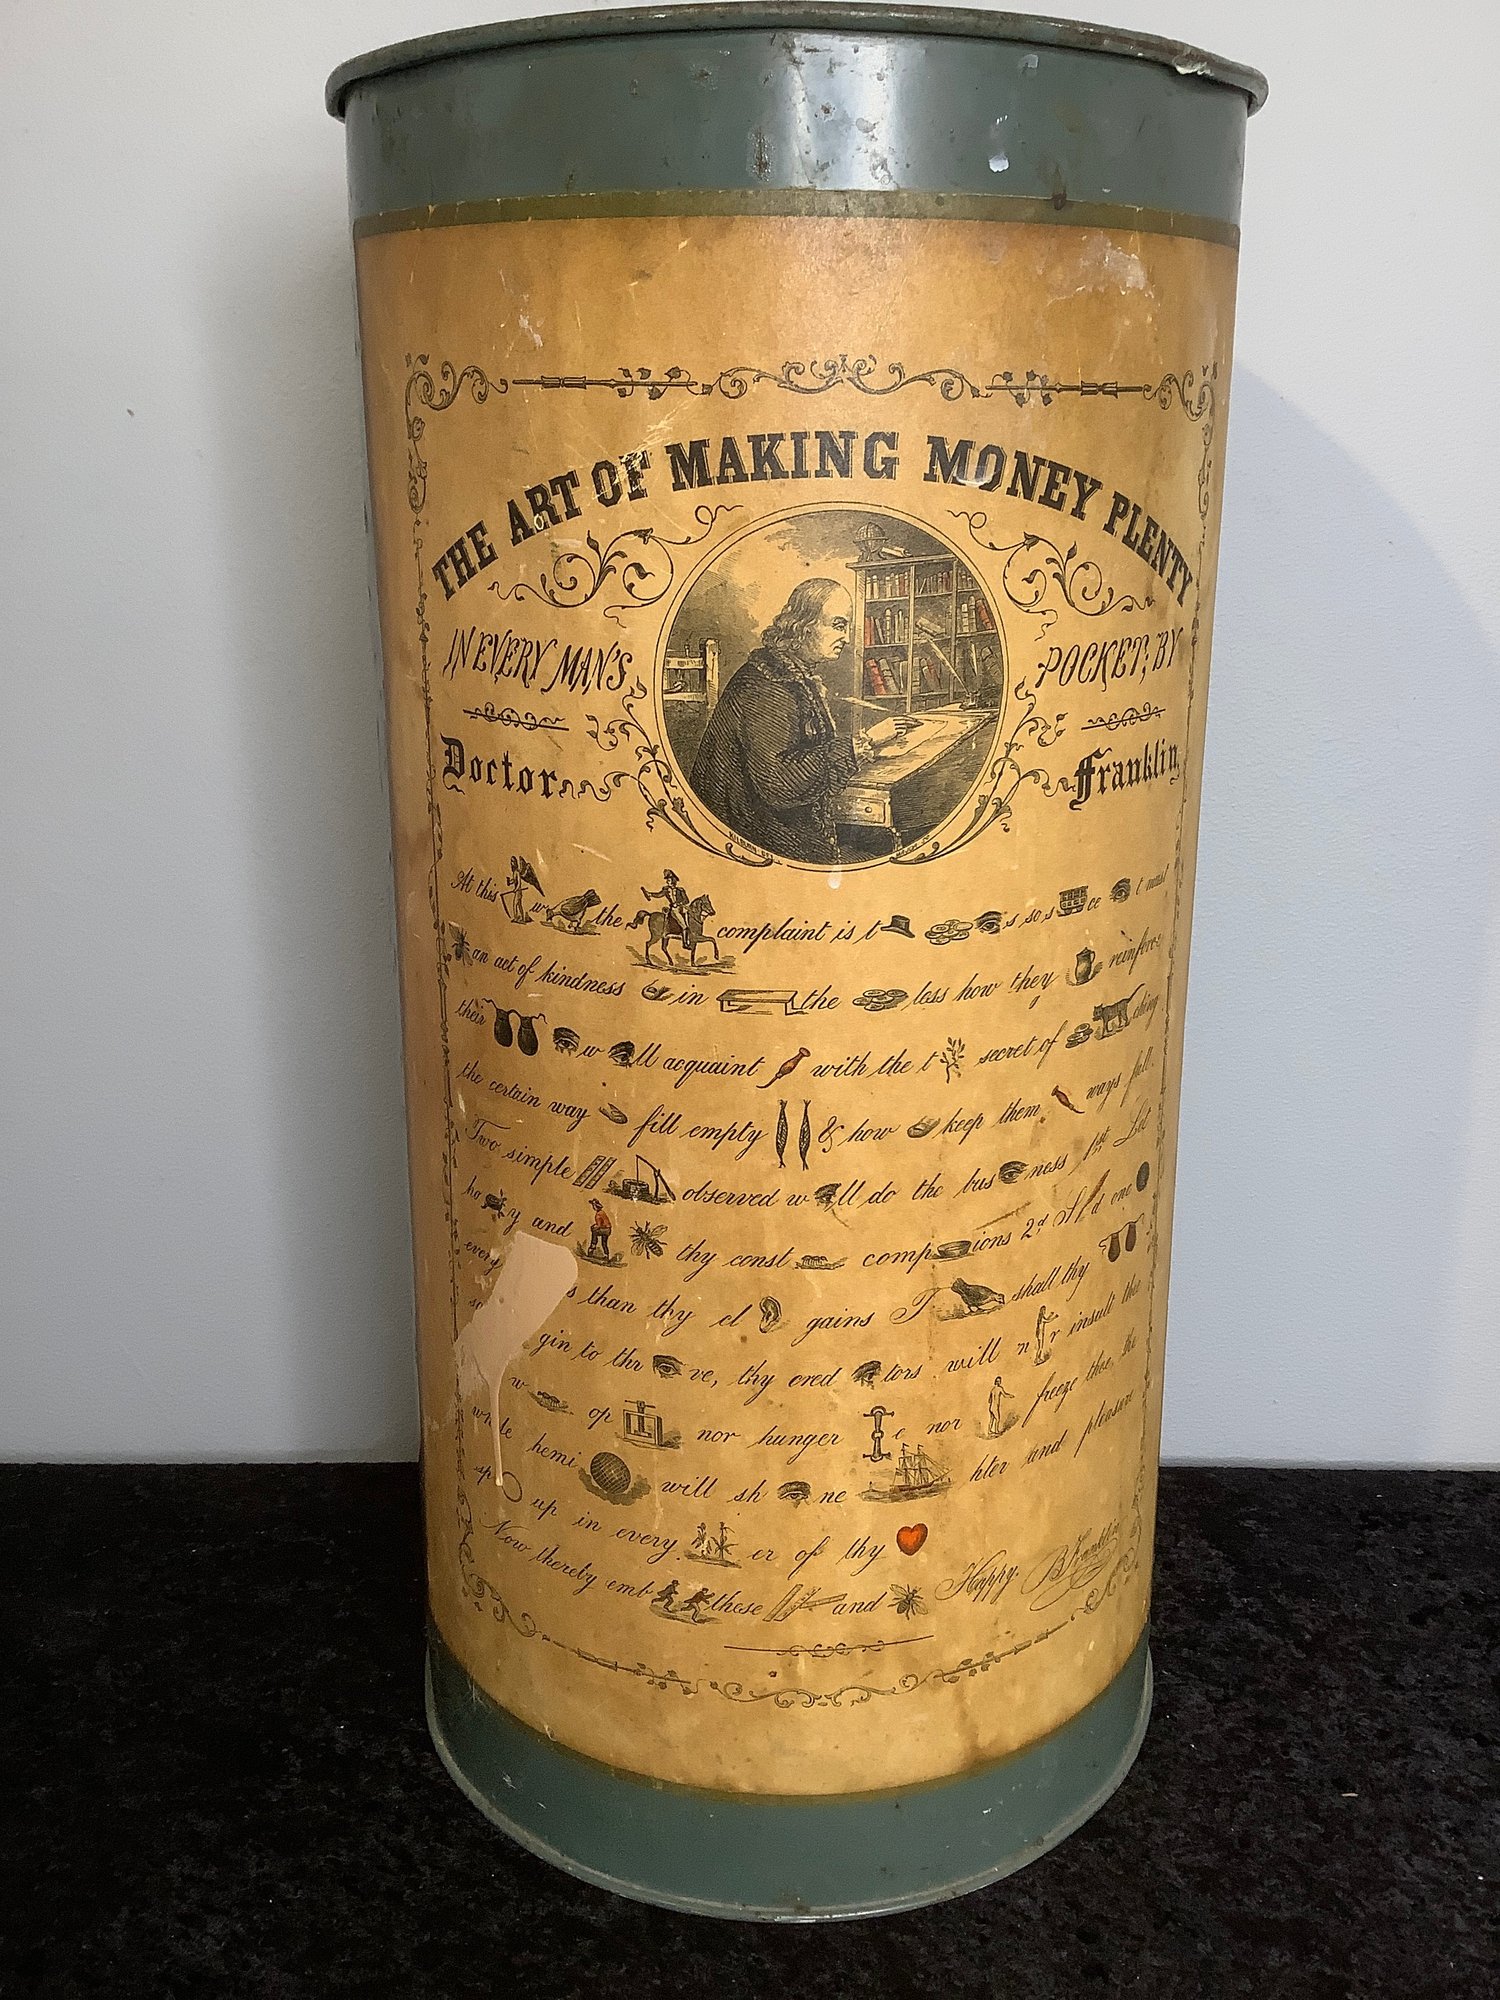 THE ART OF MAKING MONEY PLENTY
IN EVERY MAN'S POCKET; BY
Doctor Franklin
At this w the complaint is t s so s ce t must
an act of kindness in the less how they reinforce
their w ll acquaint with the t secret of ching
the certain way fill empty & how keep them ways full.
Two simple observed w ll do the bus ness 1st Let
ho y and thy const comp ions 2d d one
every s than thy cl gains T shall thy
gin to thr ve, thy cred tors will n r insult thee
w op nor hunger e nor freeze thee, the
whole hemi will sh ne hter and pleasure
sp up in every er of thy
Now thereby emb these and Happy. B Franklin